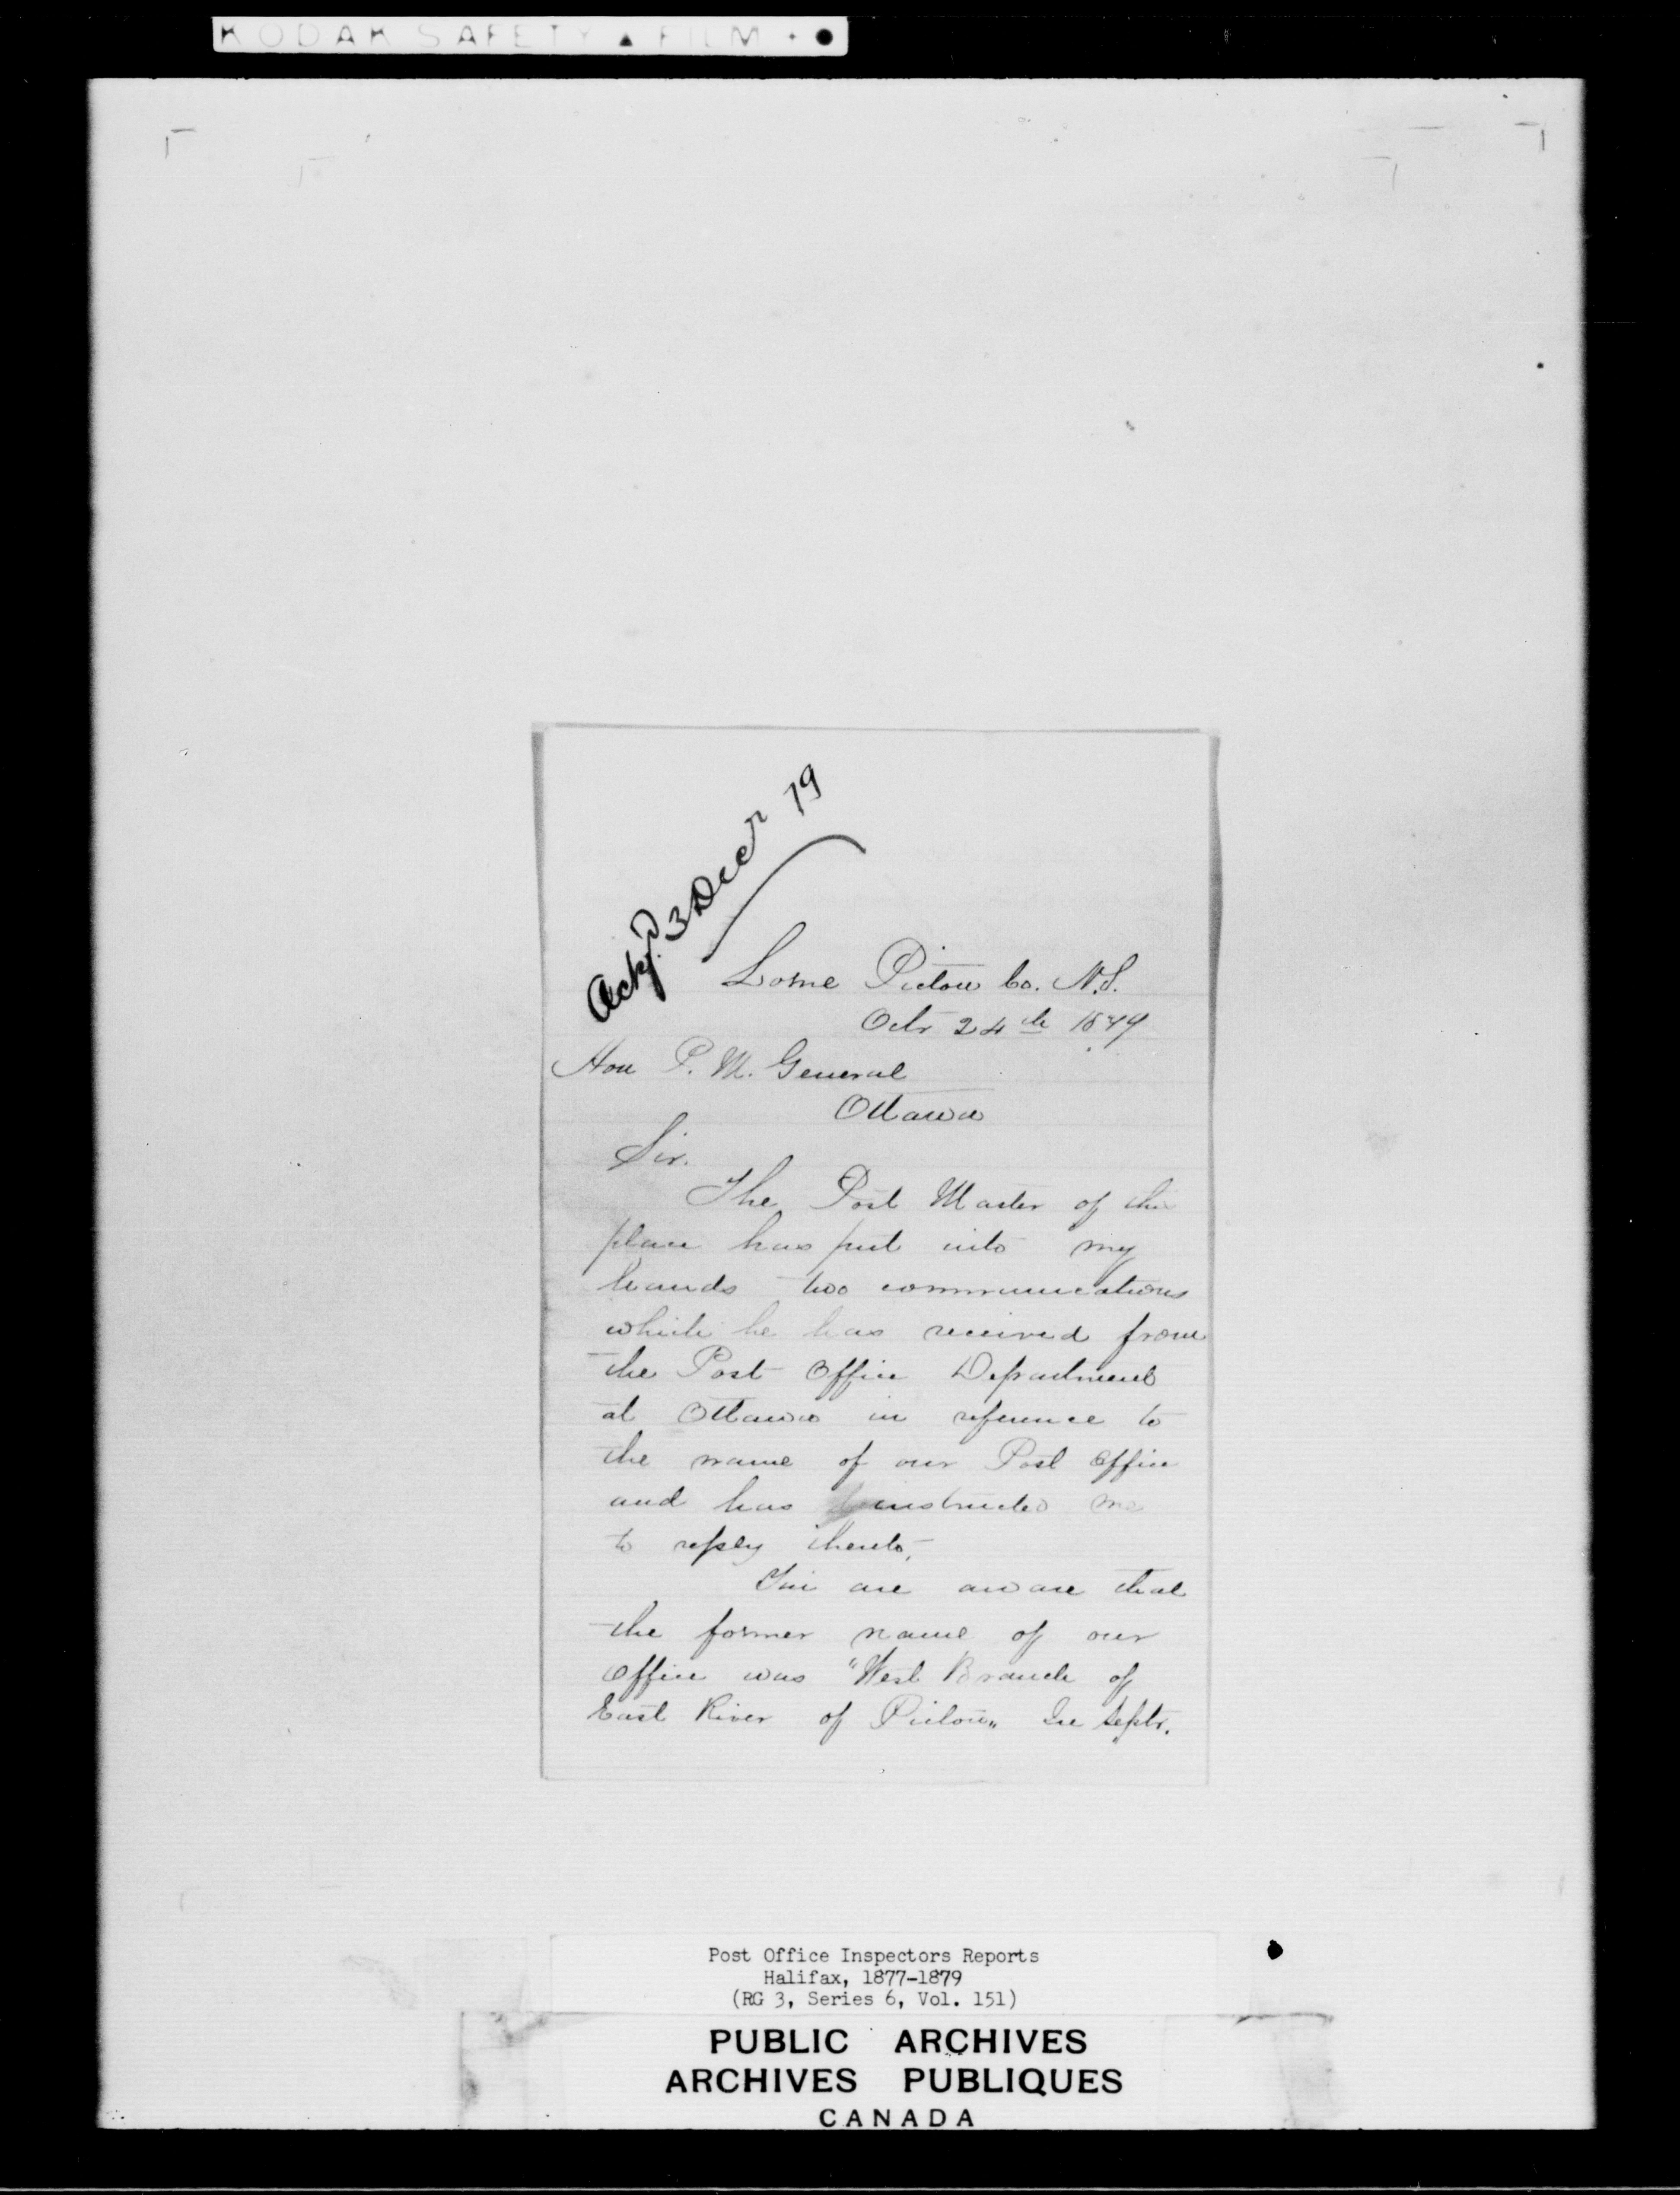 KODAK SAFETY ▲ FILM
Ackd. 3 Decr 79
Lorne Pictou Co. N.S.
Octr 24th 1879
Hon P. M. General
Ottawa
Sir.
The Post Master of this
place has put into my
hands two communications
which he has received from
the Post Office Department
at Ottawa in reference to
the name of our Post Office
and has instructed me
to reply thereto,
You are aware that
the former name of our
Office was "West Branch of
East River of Pictou„ In Septr.
Post Office Inspectors Reports
Halifax, 1877-1879
(RG 3, Series 6, Vol. 151)
PUBLIC ARCHIVES
ARCHIVES PUBLIQUES
CANADA